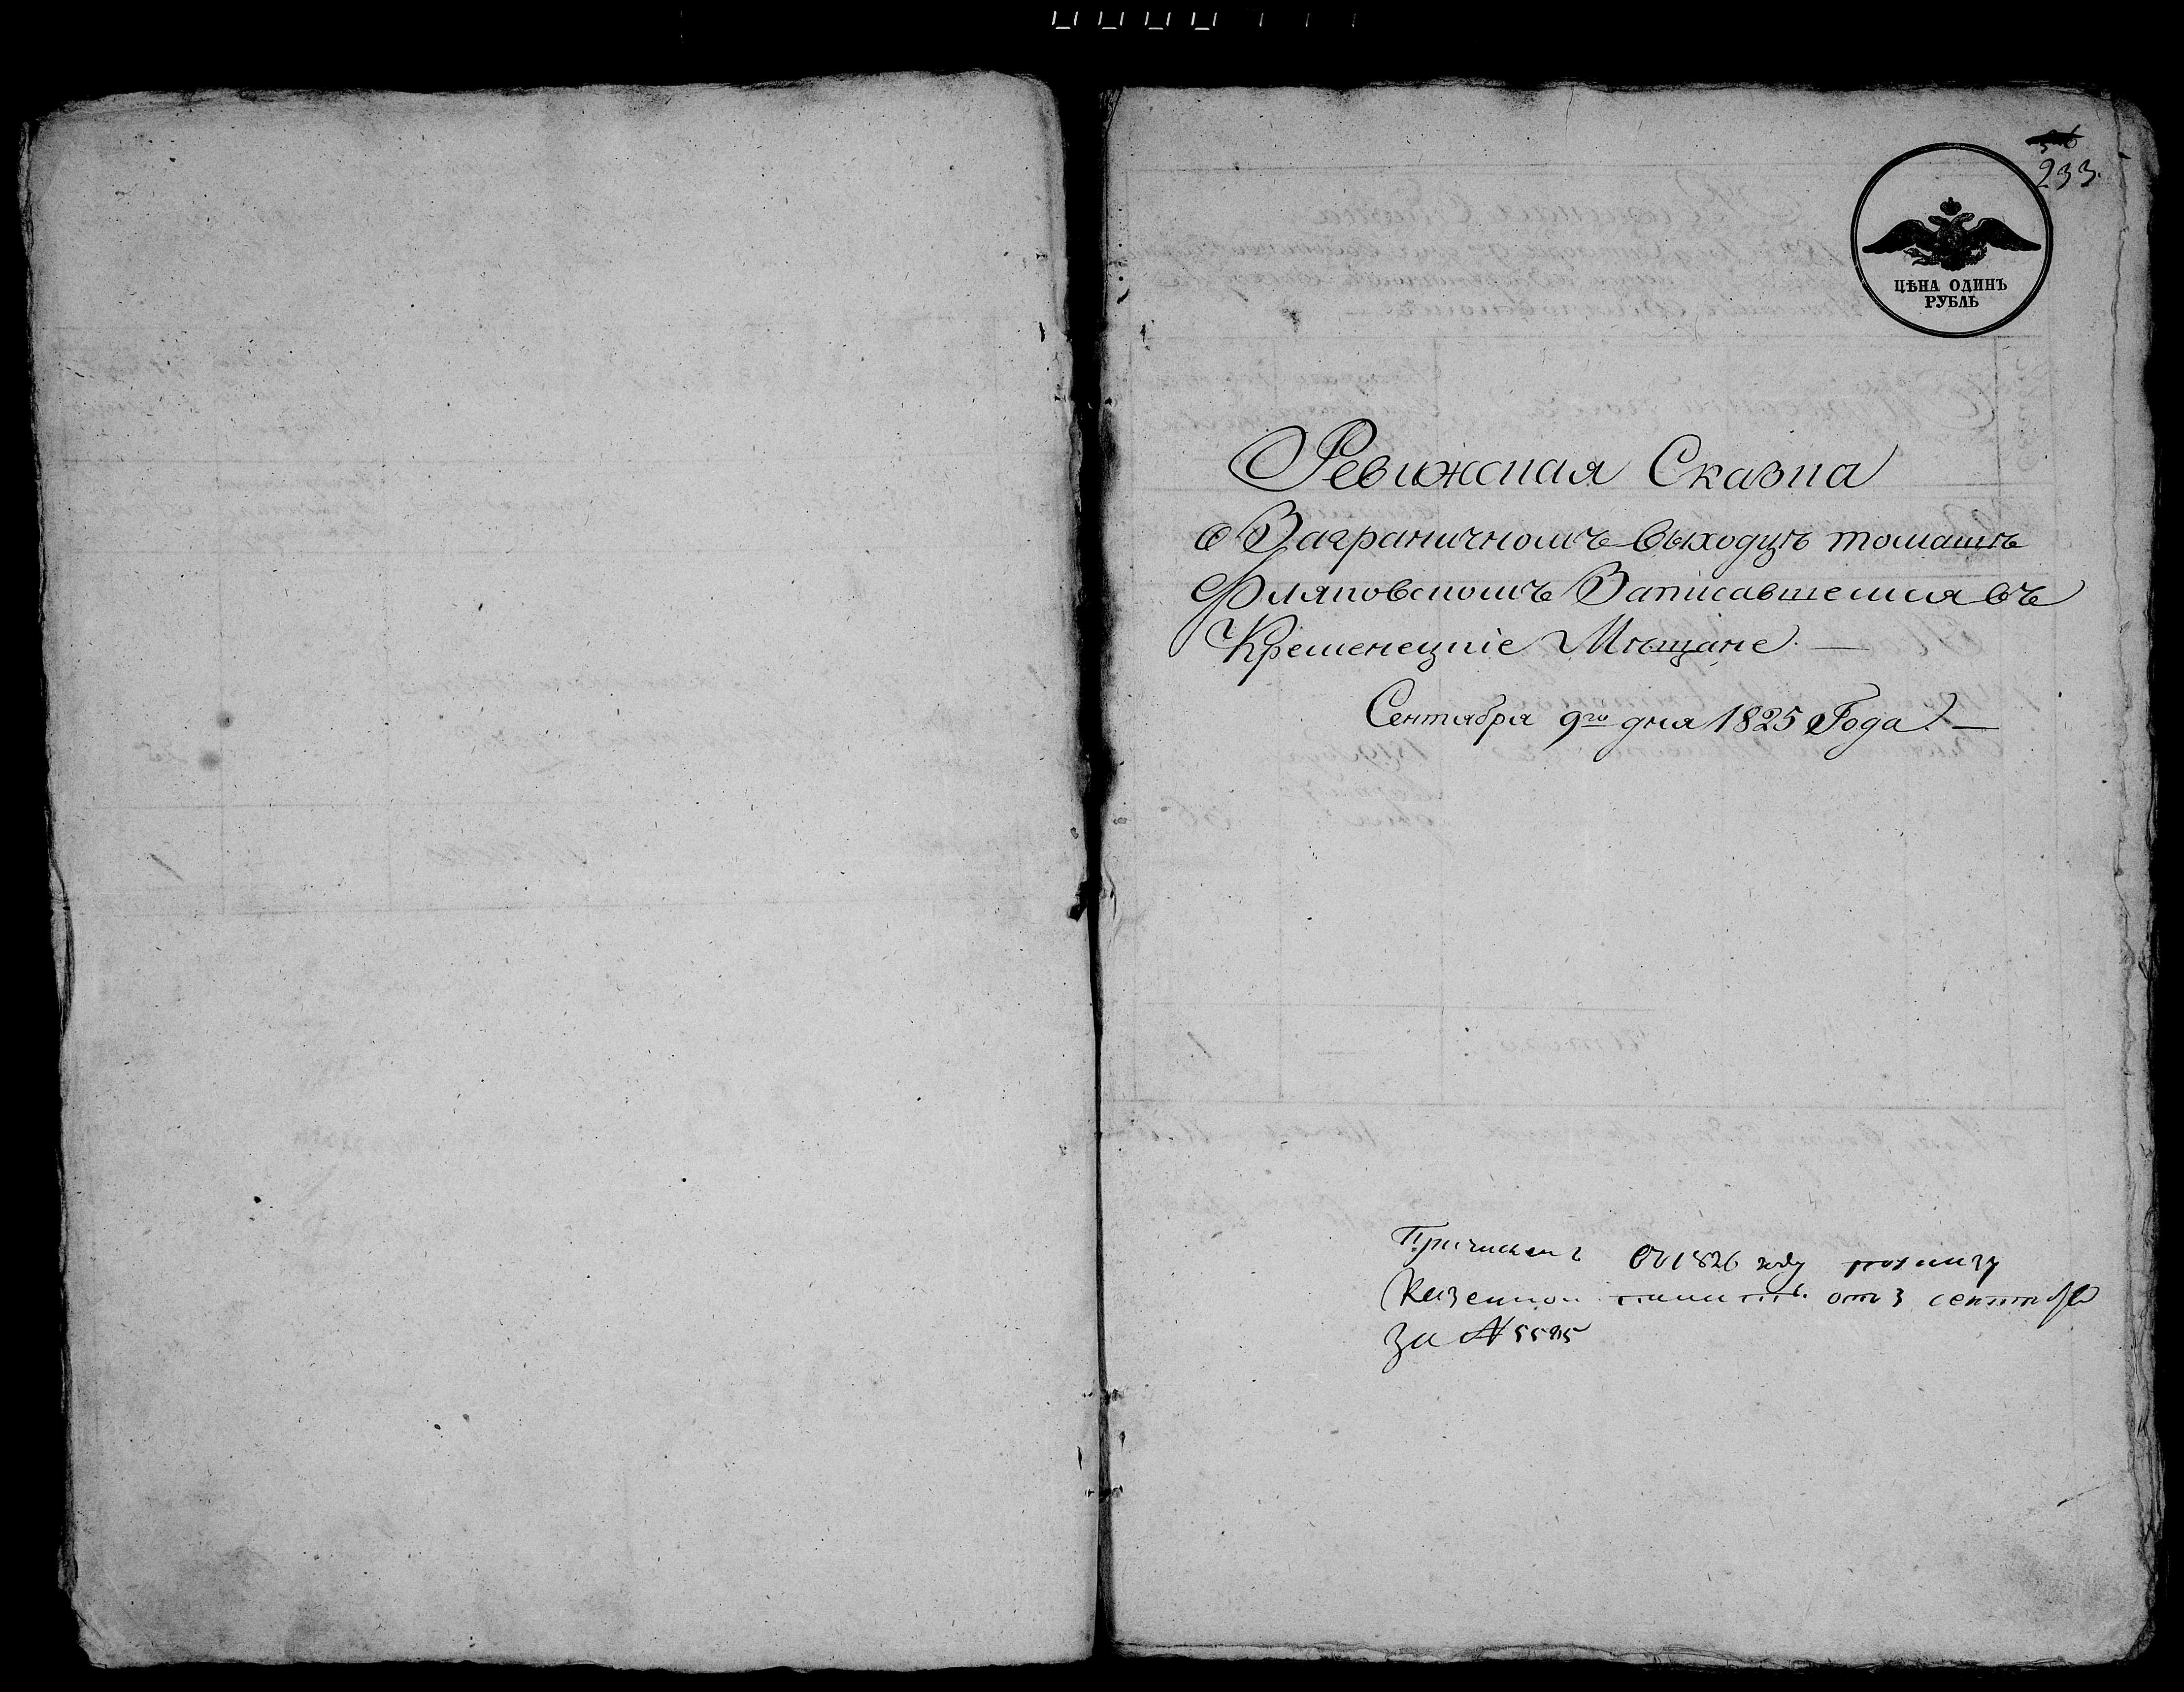 233.
ЦѢНА ОДИНЪ
РУБЛЬ
Ревижская Сказка
о Заграничномъ выходцѣ томашѣ
Фляковскомъ Записавшемся въ
Кременецкіе Мѣщане. —
Сентября 9го дня 1825 Года. —
Причисленъ въ 1826 году по указу
Казенной палаты отъ 3 сентября
за №